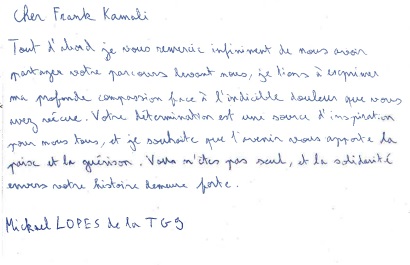 Cher Frank Kamali
Tout d'abord je vous remercie infiniment de nous avoir
partager votre parcours devant nous, je tiens à exprimer
ma profonde compassion face à l'indicible douleur que vous
avez vécue. Votre détermination est une source d'inspiration
pour nous tous, et je souhaite que l'avenir vous apporte la
paix et la guérison. Vous n'êtes pas seul, et la solidarité
envers votre histoire demeure forte.
Mickael LOPES de la TG9